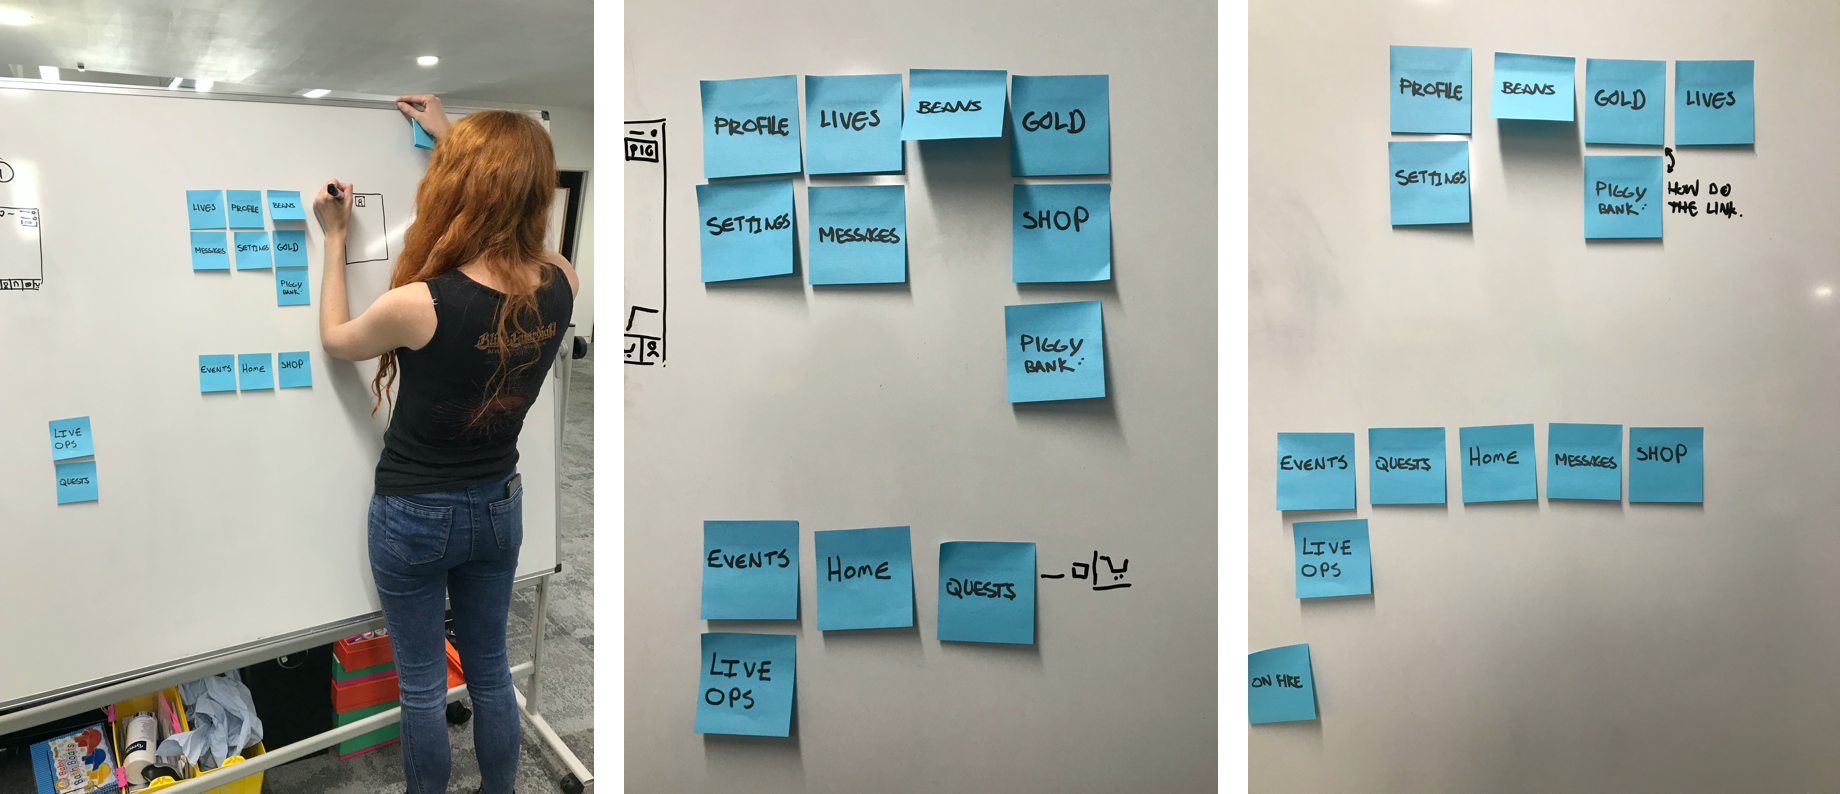 R
LIVES
PROFILE
BEANS
MESSAGES
SETTINGS
GOLD
PIGGY
BANK
EVENTS
HOME
SHOP
LIVE
OPS
QUESTS
PIG
PROFILE
LIVES
BEANS
GOLD
SETTINGS
MESSAGES
SHOP
PIGGY
BANK
EVENTS
HOME
QUESTS
LIVE
OPS
PROFILE
BEANS
GOLD
LIVES
SETTINGS
PIGGY
BANK
HOW DO
THE LINK.
EVENTS
QUESTS
HOME
MESSAGES
SHOP
LIVE
OPS
ON FIRE